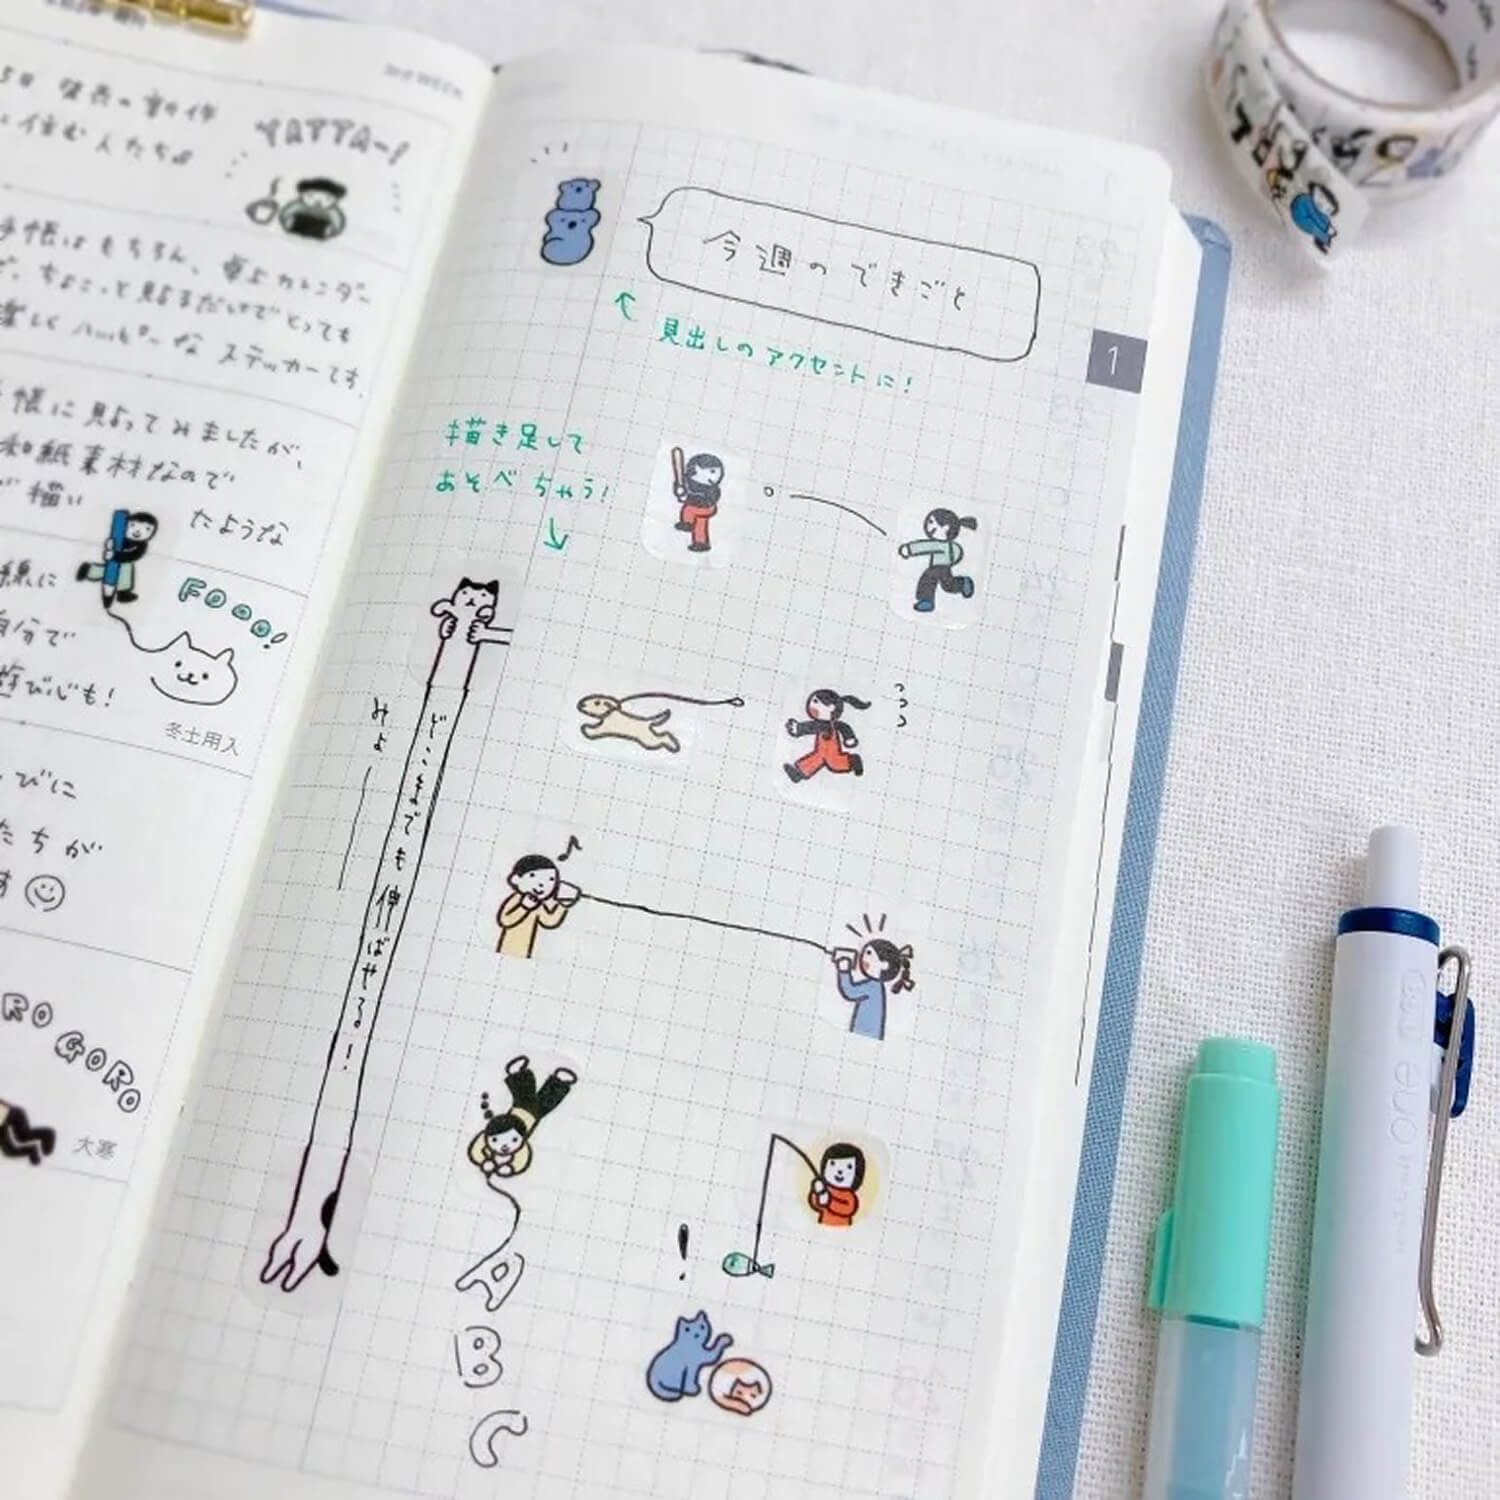 3rd WEEK
5日 発表の新作
に住む人たち♪
YATTA-!
手帳はもちろん、卓上カレンダー
ど、ちょこっと貼るだけでとっても
楽しくハッピーな ステッカーです。
手帳に貼ってみましたが、
和紙素材なので
が描い
たような
線に
自分で
遊び心も!
FOOO!
冬土用入
びに
たちが
す
RO GORO
大寒
今週のできごと
見出しのアクセントに!
1
描き足して
あそべちゃう!
みょ──
どこまでも 伸ばせる!!
A
B
C
!